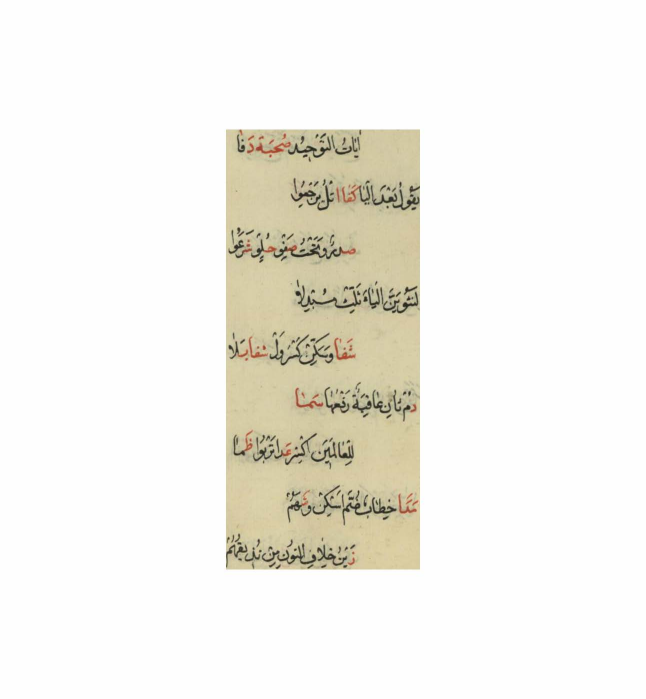 ايات التوحيد صحبة دفا
يقول بعد اليا كفا اتل يرجعوا
صدر وتحت صفو حلو شرعوا
لنثوين الباء ثلث مبدلا
شفا وسكن كسر ول شفا بلا
دم ثان عاقبة رفعها سما
للعالمين اكسر عدا تربوا ظما
مدا خطاب ضم اسكن وشهم
زين خلاف النون من نذيقهم